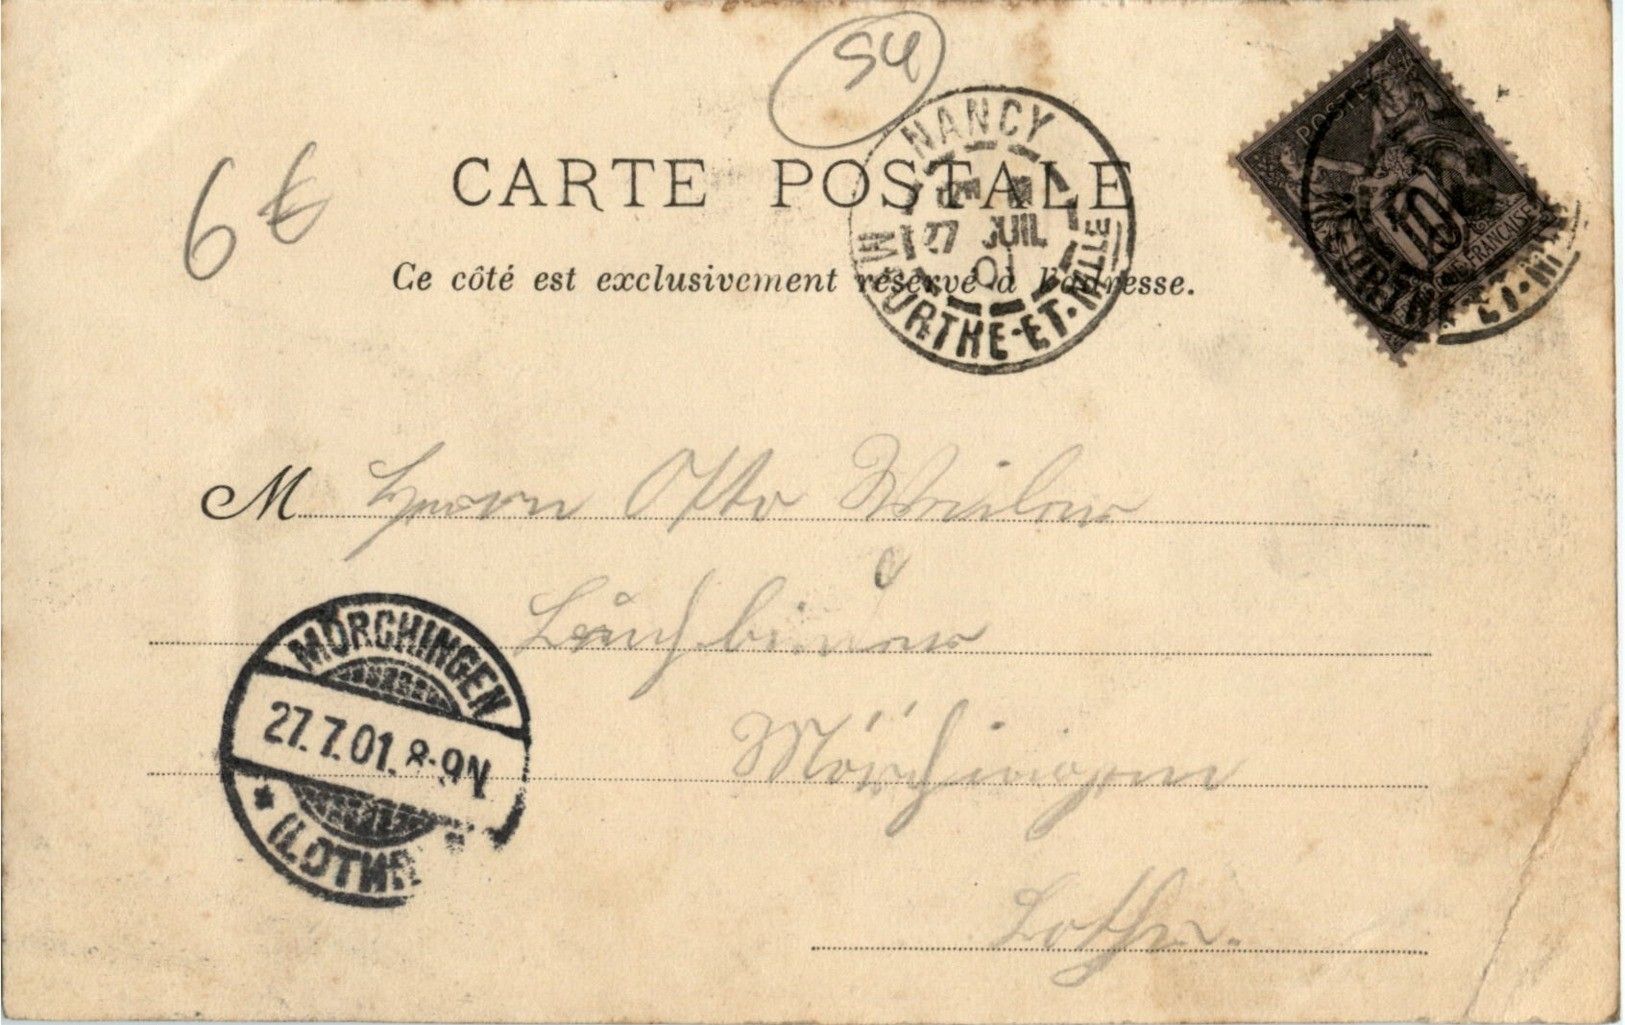 54
6€
NANCY
27 JUIL
01
MEURTHE-ET-MLLE
POSTES
10
FRANCAISE
MEURTHE-ET-M
CARTE POSTALE
Ce côté est exclusivement réservé à l'adresse.
M Herrn Otto
Buchbinder
MÖRCHINGEN
27.7.01. 8-9N
* (LOTHR
Mörchingen
Lothr.